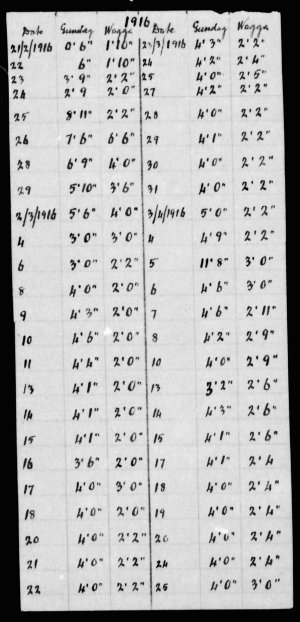 1916
Date Gundag Wagga Date Gundag Wagga
21/2/1916 0'6" 1'10" 23/3/1916 4'3" 2'2"
22 6" 1'10" 24 4'2" 2'4"
23 3'9" 2'2" 25 4'0" 2'5"
24 2'9 2'0" 27 4'2" 2'2"
25 8'11" 2'2" 28 4'0" 2'2"
26 7'6" 6'6" 29 4'1" 2'2"
28 6'9" 4'0" 30 4'0" 2'2"
29 5'10" 3'6" 31 4'0" 2'2"
2/3/1916 5'6" 4'0" 3/4/1916 5'0" 2'2"
4 3'0" 3'0" 4 4'9" 2'2"
6 3'0" 2'2" 5 11'8" 3'0"
8 4'0" 2'0" 6 4'6" 3'0"
9 4'3" 2'0" 7 4'6" 2'11"
10 4'6" 2'0" 8 4'2" 2'9"
11 4'4" 2'0" 10 4'0" 2'9"
13 4'1" 2'0" 13 3'2" 2'6"
14 4'1" 2'0" 14 4'3" 2'6"
15 4'1" 2'0" 15 4'1" 2'6"
16 3'6" 2'0" 17 4'1" 2'4
17 4'0" 3'0" 18 4'0" 2'4"
18 4'0" 2'0" 19 4'0" 2'4"
20 4'0" 2'2" 20 4'0" 2'4"
21 4'0" 2'2" 24 4'0" 2'4"
22 4'0" 2'2" 25 4'0" 3'0"